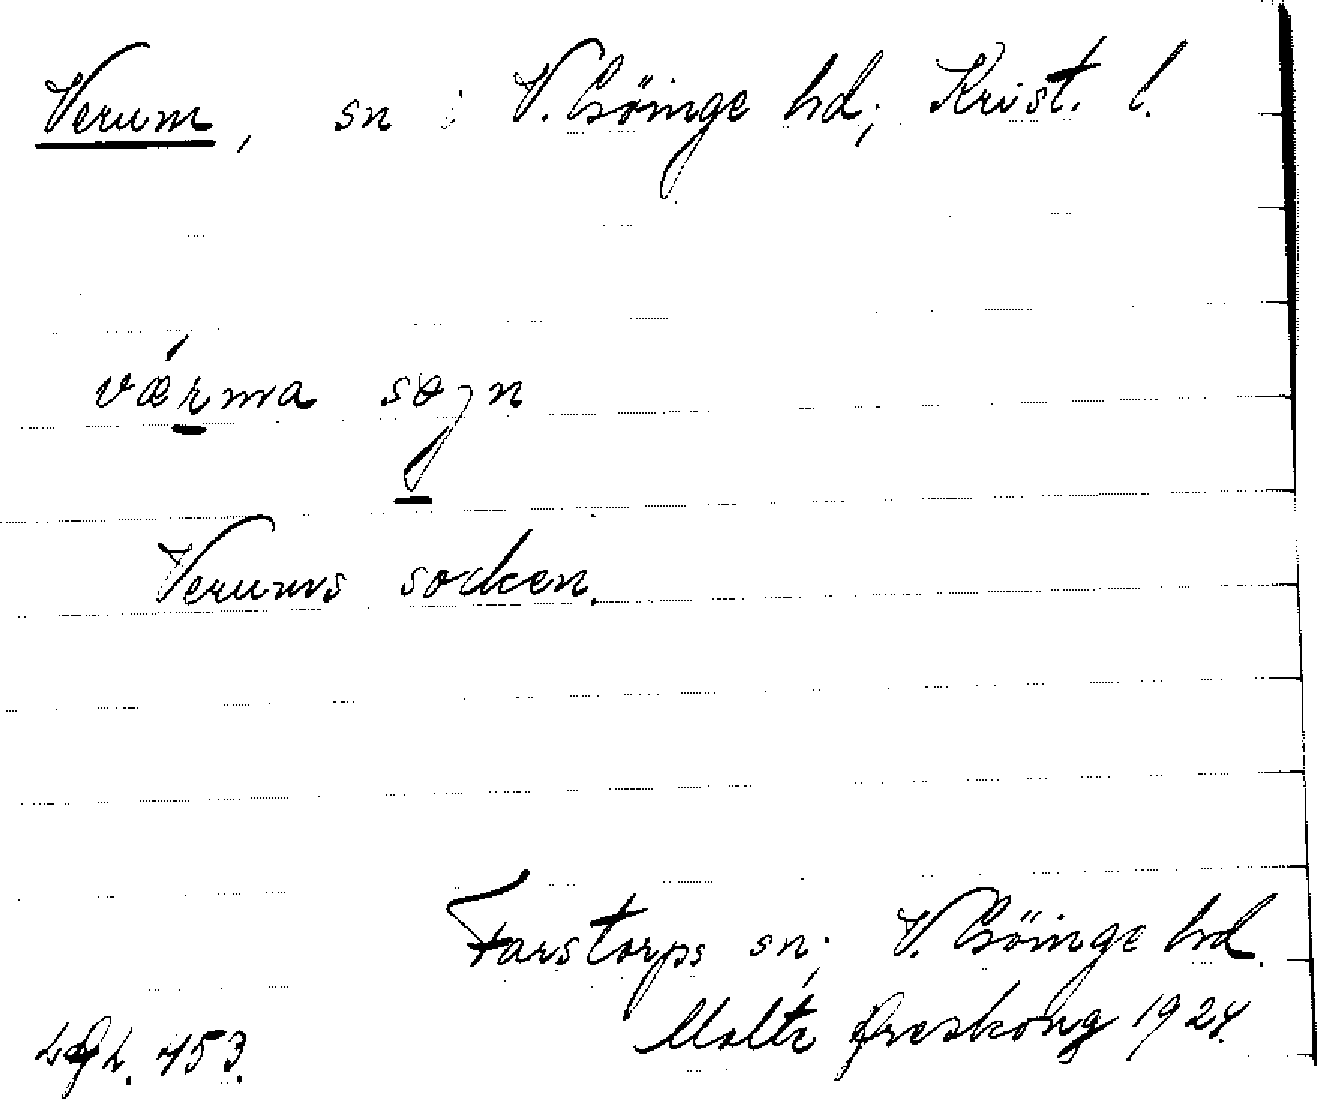 Verum, sn i V. Göinge hd; Krist. l.
vǽrma søgn
Verums socken.
Farstorps sn; V. Göinge hd.
Malte Areskoug 1924.
453.